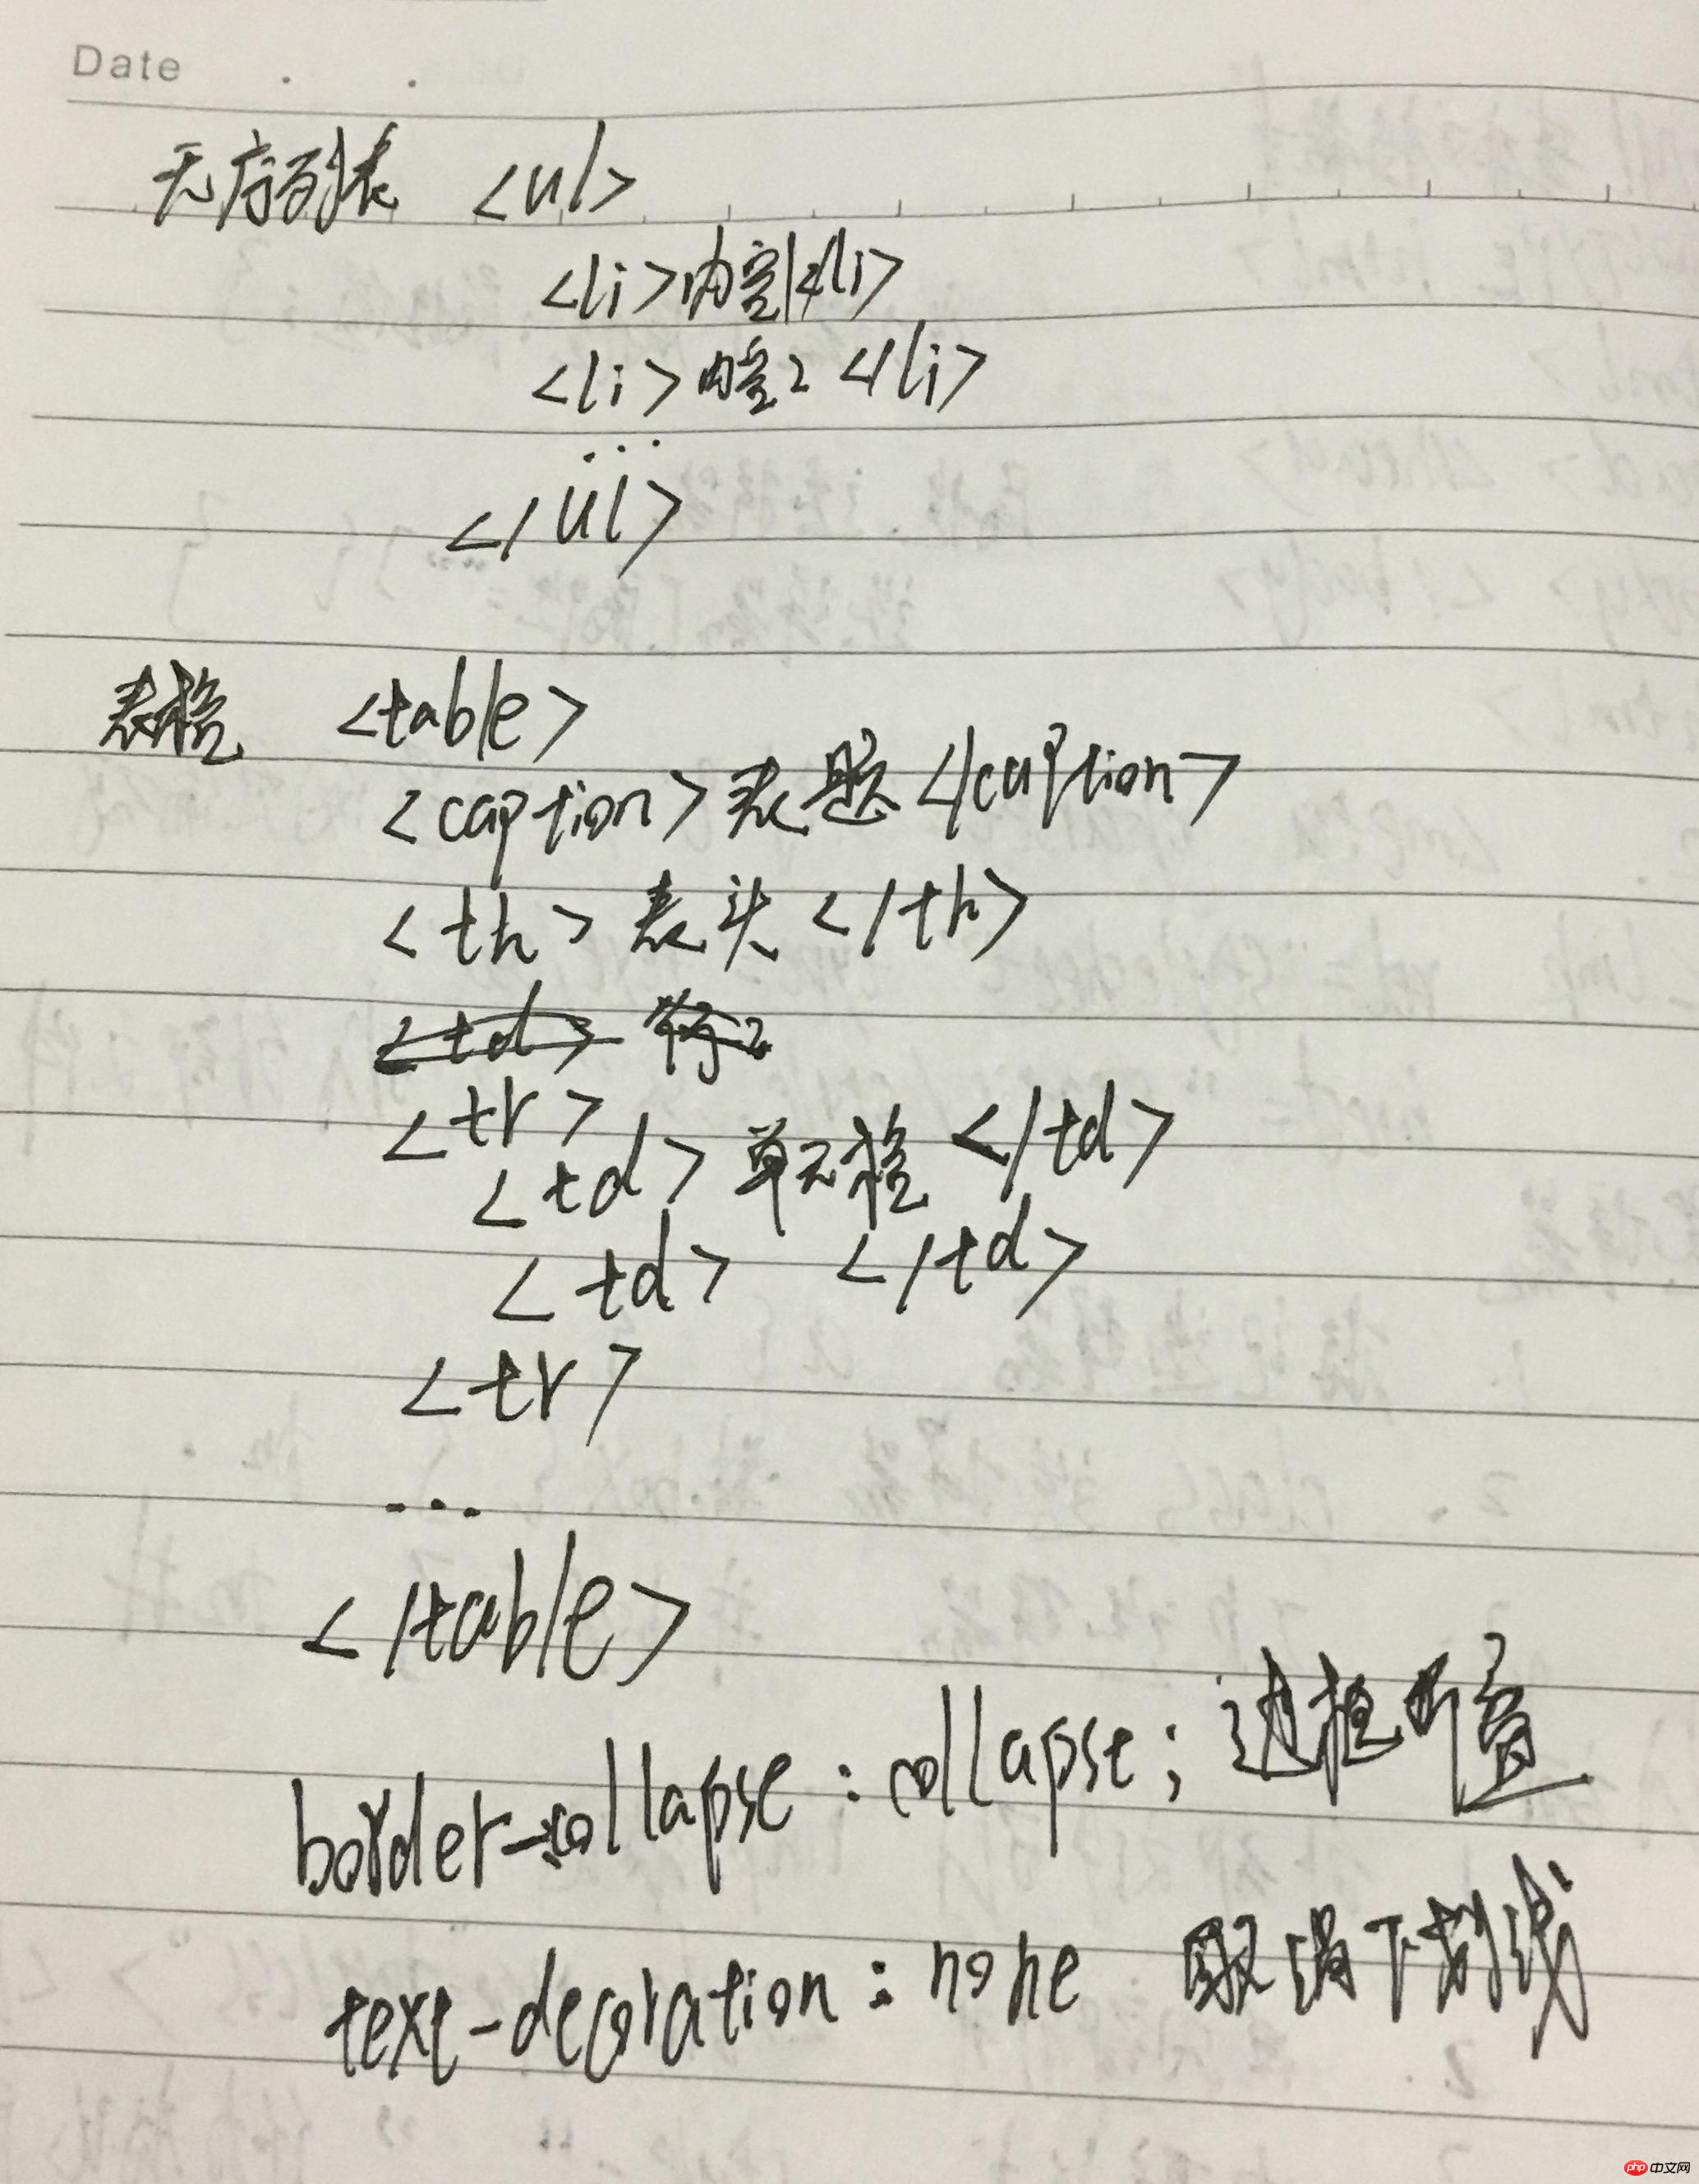 Date . .
无序列表 <ul>
<li>内容1</li>
<li>内容2</li>
...
</ul>
表格 <table>
<caption>表题</caption>
<th>表头</th>
<td>
<tr>
<td>单元格</td>
<td> </td>
<tr>
...
</table>
border-collapse:collapse;边框
text-decoration:none 取消下划线
php中文网